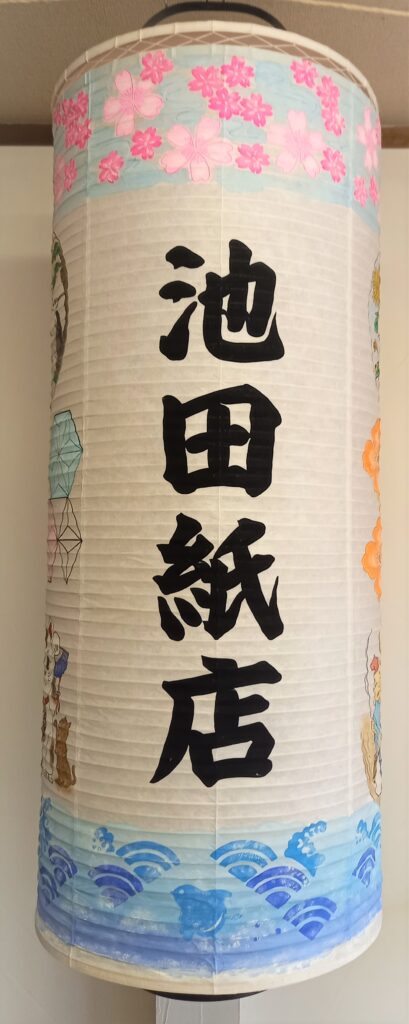 池田紙店